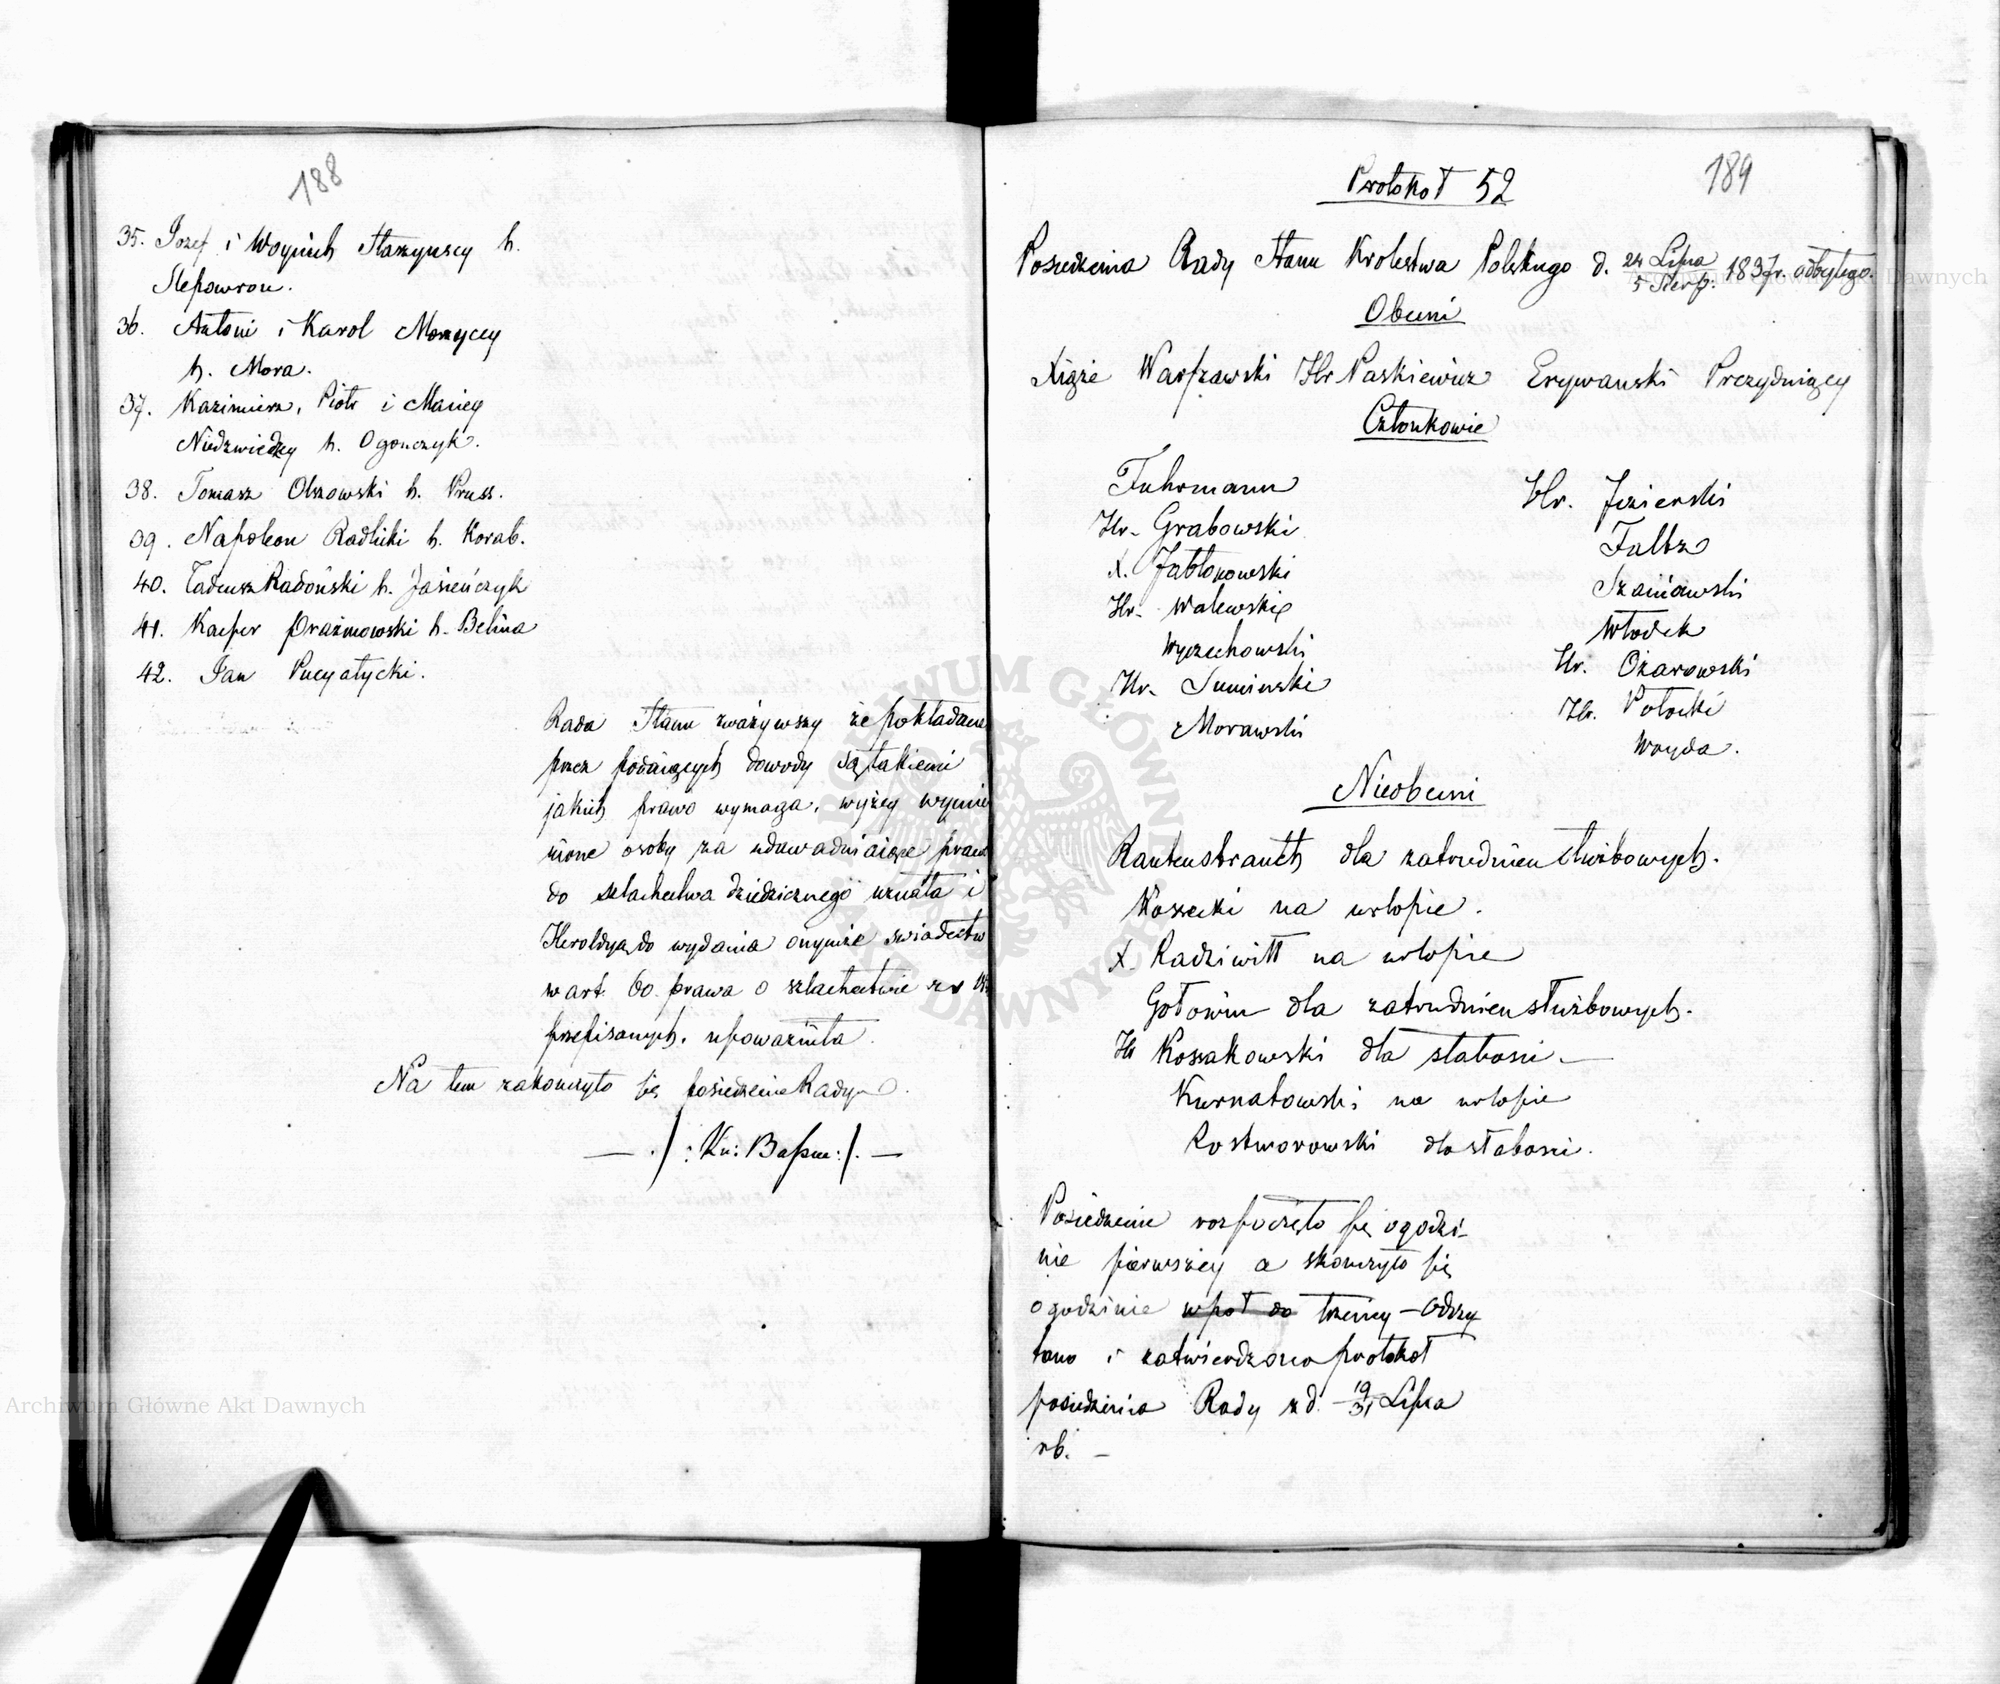 188
35. Jozef i Woyciech Staszynscy h.
Slepowron.
36. Antoni i Karol Morzyccy
h. Mora.
37. Kazimierz, Piotr i Maciey
Niedzwiedzcy h. Ogonczyk.
38. Tomasz Olszowski h. Pruss.
39. Napoleon Radlicki h. Korab.
40. Tadeusz Radoński h. Jasieńczyk
41. Kacper Prażmowski h. Belina
42. Jan Pucyatycki.
Rada Stanu zważywszy że pokładane
przez podaiących dowody są takiemi
jakich prawo wymaga, wyżey wymie
nione osoby za udowadniaiące prawo
do szlachectwa dziedzicznego uznała i
Heroldyą do wydania onymże swiadectw
w art. 60 prawa o szlachectwie
przepisanych, upoważniła.
Na tem zakonczyło się posiedzenie Rady
— ./: Кн: Варш: /. —
189
Protokoł 52
Posiedzenia Rady Stanu Krolestwa Polskiego d. 24 Lipca / 5 Sierp. 1837 r. odbytego.
Obecni
Xiąże Warszawski Hr Paskiewicz Erywanski Prezyduiący
Członkowie
Fuhrmann
Hr. Grabowski
X. Jabłonowski
Hr. Walewski
Wyczechowski
Hr. Suminski
Morawski
Hr. Jezierski
Faltz
Szaniawski
Włodek
Hr. Ożarowski
Hr. Potocki
Woyda.
Nieobecni
Rautenstrauch dla zatrudnien służbowych.
Kossecki na urlopie.
X. Radziwiłł na urlopie
Gołowin dla zatrudnien służbowych.
Hr Kossakowski dla słabosci. —
Kurnatowski na urlopie
Rostworowski dla słabosci.
Posiedzenie rozpoczęło się o godzi-
nie pierwszey a skonczyło się
o godzinie wpoł do trzeciey — Odczy
tano i zatwierdzono protokoł
posiedzenia Rady z d. 19/31 Lipca
rb. —
Archiwum Główne Akt Dawnych
Archiwum Główne Akt Dawnych
ARCHIWUM GŁÓWNE AKT DAWNYCH